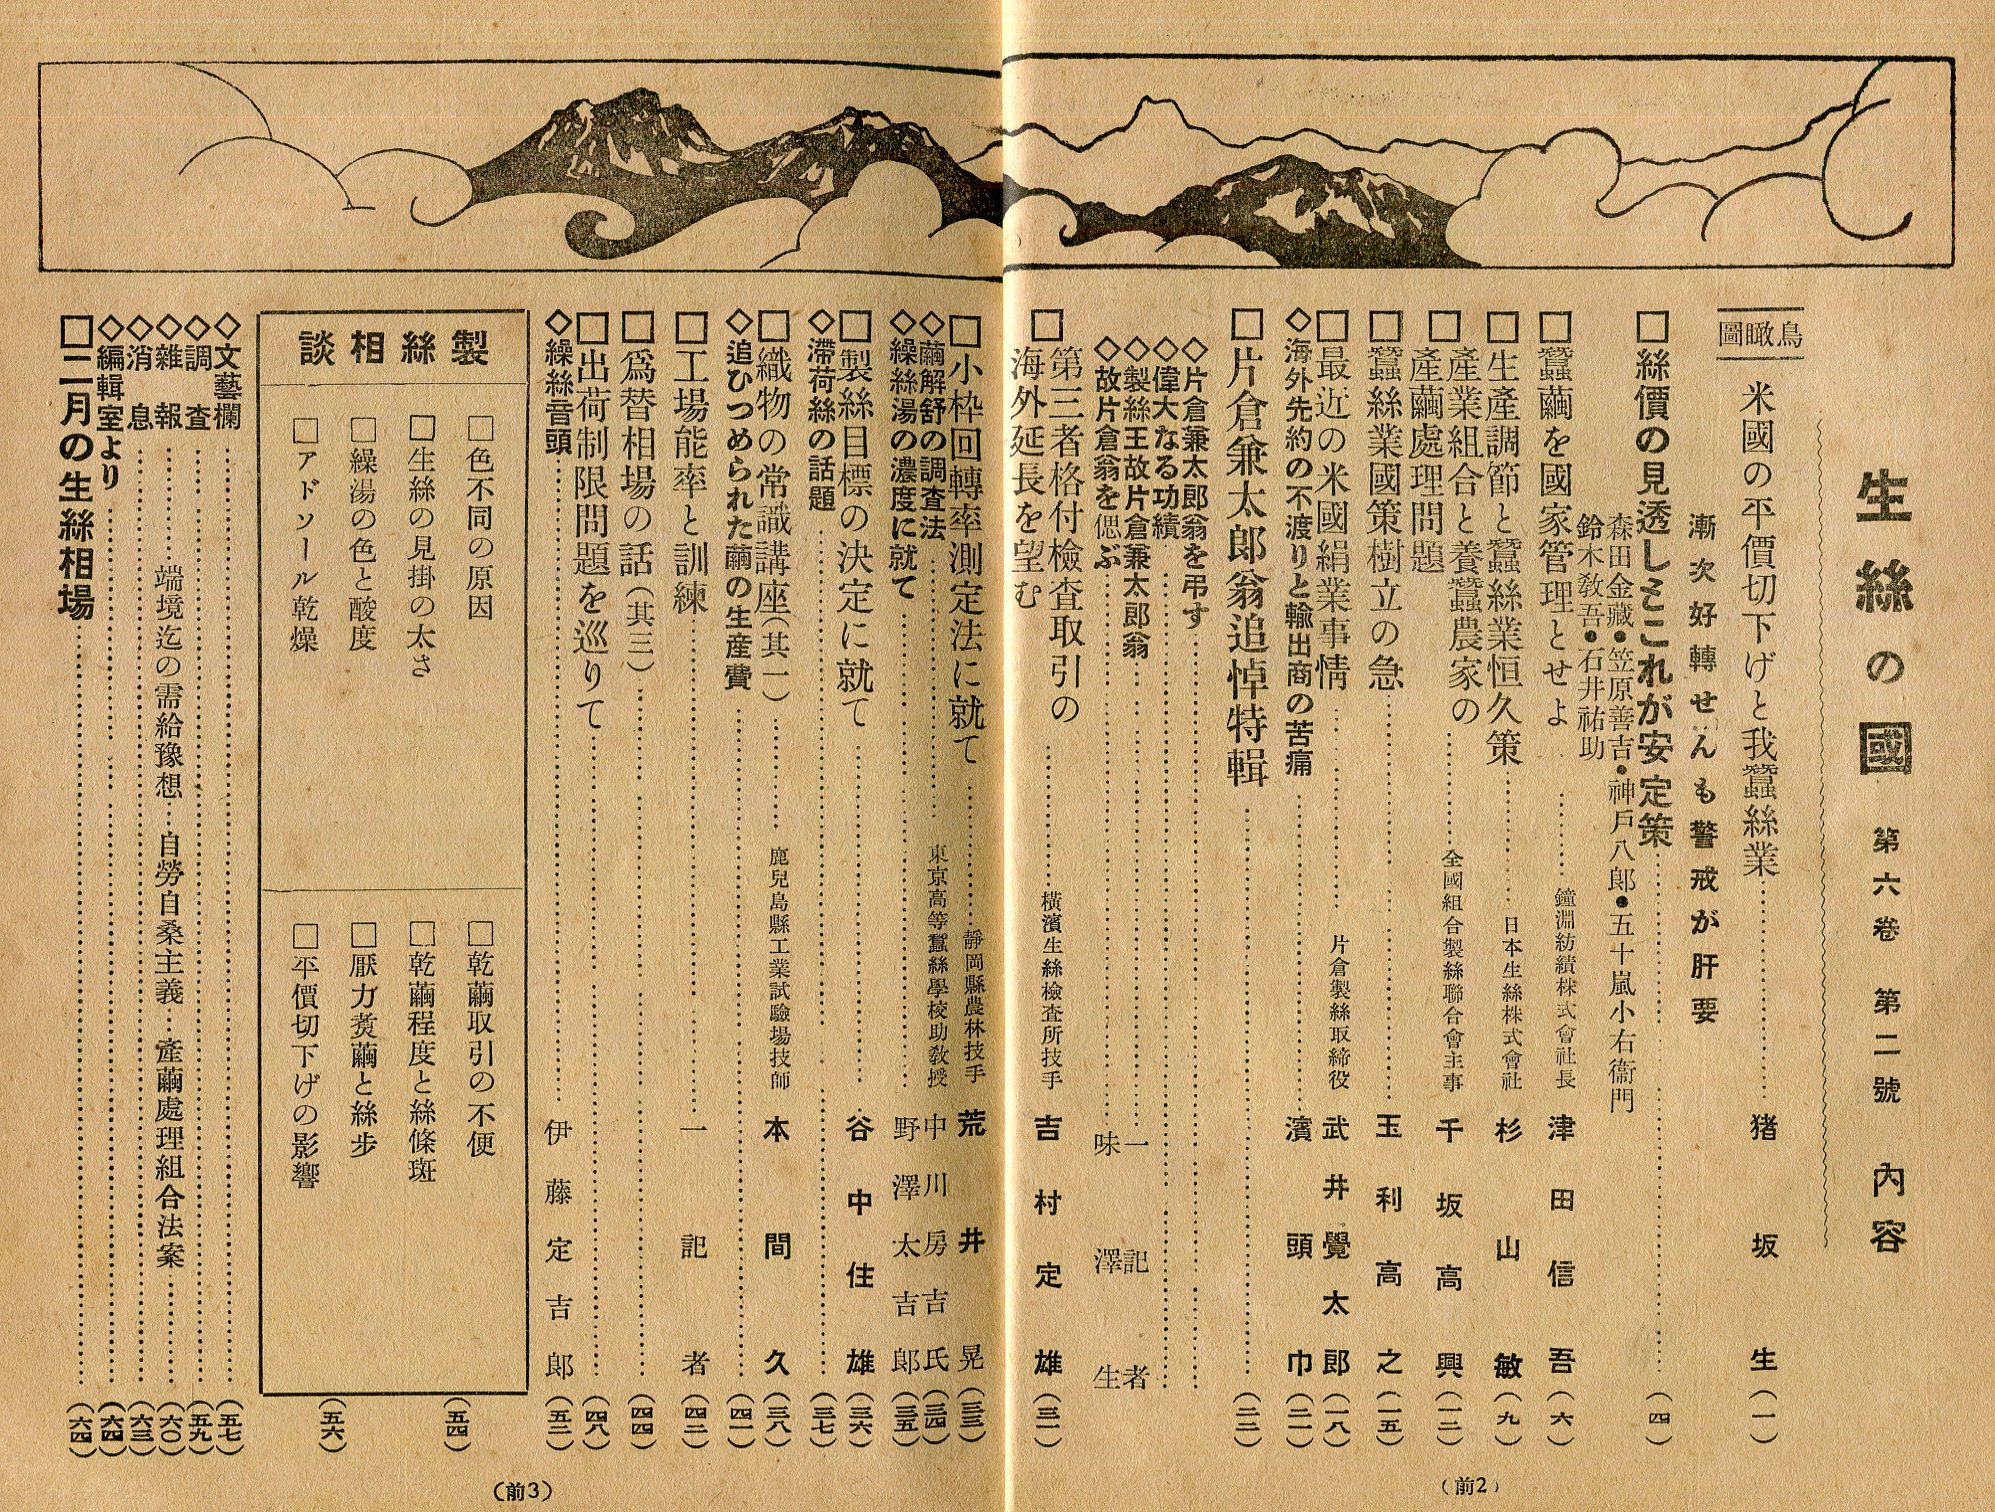 生絲の國 第六卷 第二號 內容
鳥瞰圖 米國の平價切下げと我蠶絲業 猪坂生 (一)
漸次好轉せんも警戒が肝要
□絲價の見透しとこれが安定策 (四)
森田金藏●笠原善吉●神戶八郞●五十嵐小右衞門
鈴木敎吾●石井祐助
□蠶繭を國家管理とせよ 鐘淵紡績株式會社長 津田信吾 (六)
□生產調節と蠶絲業恒久策 日本生絲株式會社 杉山敏 (九)
□產業組合と養蠶農家の
產繭處理問題 全國組合製絲聯合會主事 千坂高興 (一二)
□蠶絲業國策樹立の急 玉利高之 (一五)
□最近の米國絹業事情 片倉製絲取締役 武井覺太郞 (一八)
◇海外先約の不渡りと輸出商の苦痛 濱頭巾 (二一)
□片倉兼太郞翁追悼特輯 (二二)
◇片倉兼太郞翁を弔す
◇偉大なる功績
◇製絲王故片倉兼太郞翁 一記者
◇故片倉翁を偲ぶ 味澤生
□第三者格付檢査取引の
海外延長を望む 橫濱生絲檢査所技手 吉村定雄 (三一)
□小枠回轉率測定法に就て 靜岡縣農林技手 荒井晃 (三三)
◇繭解舒の調査法 東京高等蠶絲學校助敎授 中川房吉氏 (三四)
◇繰絲湯の濃度に就て 野澤太吉郞 (三五)
□製絲目標の決定に就て 谷中住雄 (三六)
◇滯荷絲の話題 (三七)
□織物の常識講座(其一) 鹿兒島縣工業試驗場技師 本間久 (三八)
◇追ひつめられた繭の生產費 (四一)
□工場能率と訓練 一記者 (四二)
□爲替相場の話(其三) (四四)
□出荷制限問題を巡りて (四八)
◇繰絲音頭 伊藤定吉郞 (五三)
製絲相談
□色不同の原因
□生絲の見掛の太さ
□繰湯の色と酸度
□アドソール乾燥
□乾繭取引の不便
□乾繭程度と絲條斑
□厭力煑繭と絲步
□平價切下げの影響
(五四)
(五六)
◇文藝欄 (五七)
◇調査 (五九)
◇雜報 端境迄の需給豫想…自勞自桑主義…產繭處理組合法案 (六〇)
◇消息 (六三)
◇編輯室より (六四)
□二月の生絲相場 (六四)
(前2)
(前3)